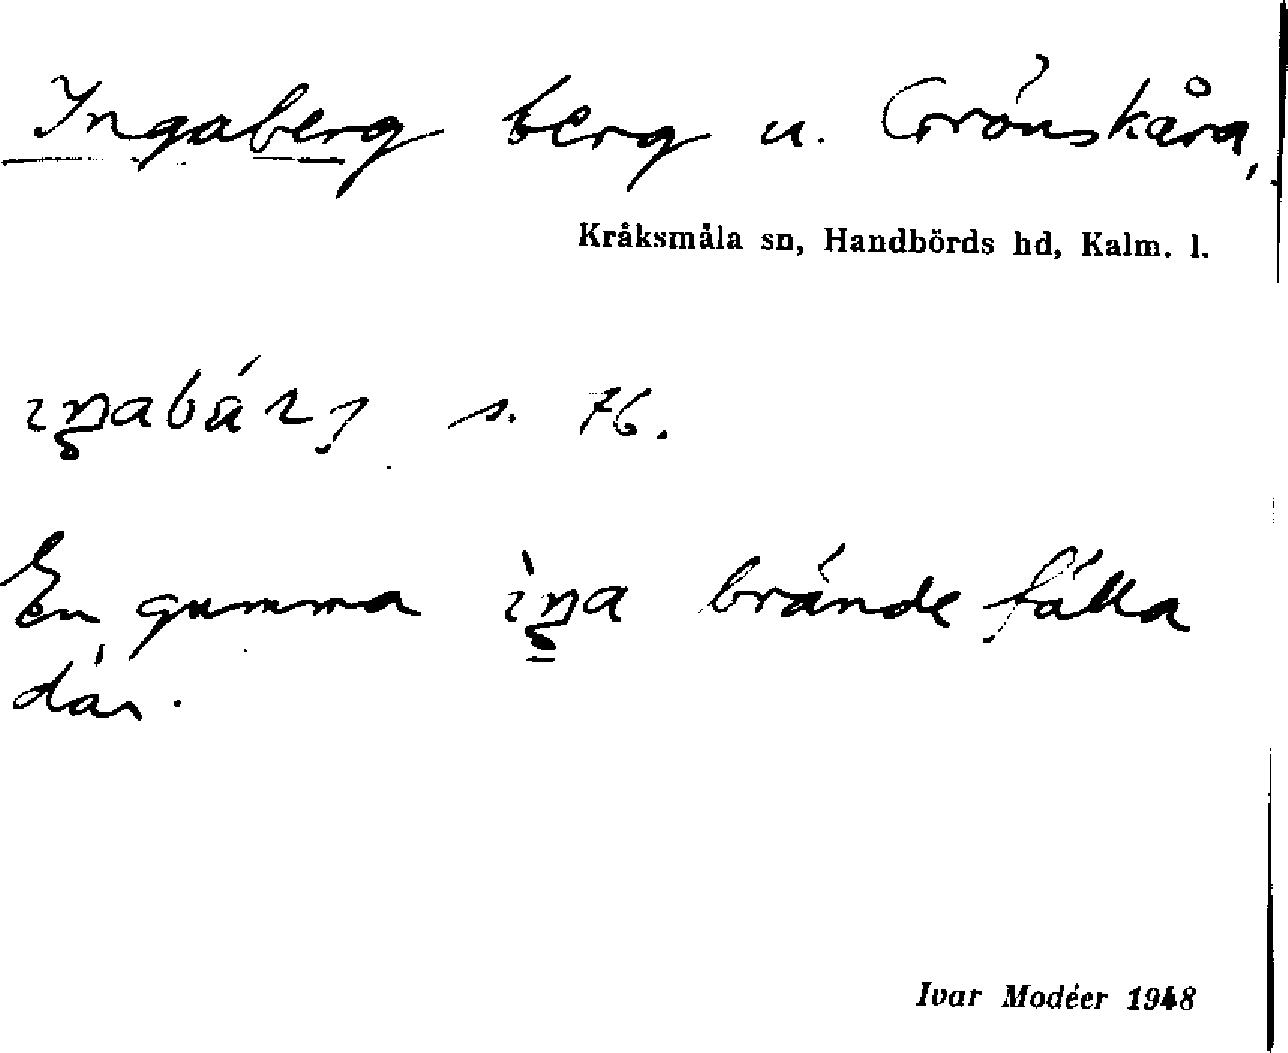 Ingaberg berg u. Grönskåra,
Kråksmåla sn, Handbörds hd, Kalm. l.
s. 76.
En gumma brände fälla
där.
Ivar Modéer 1948